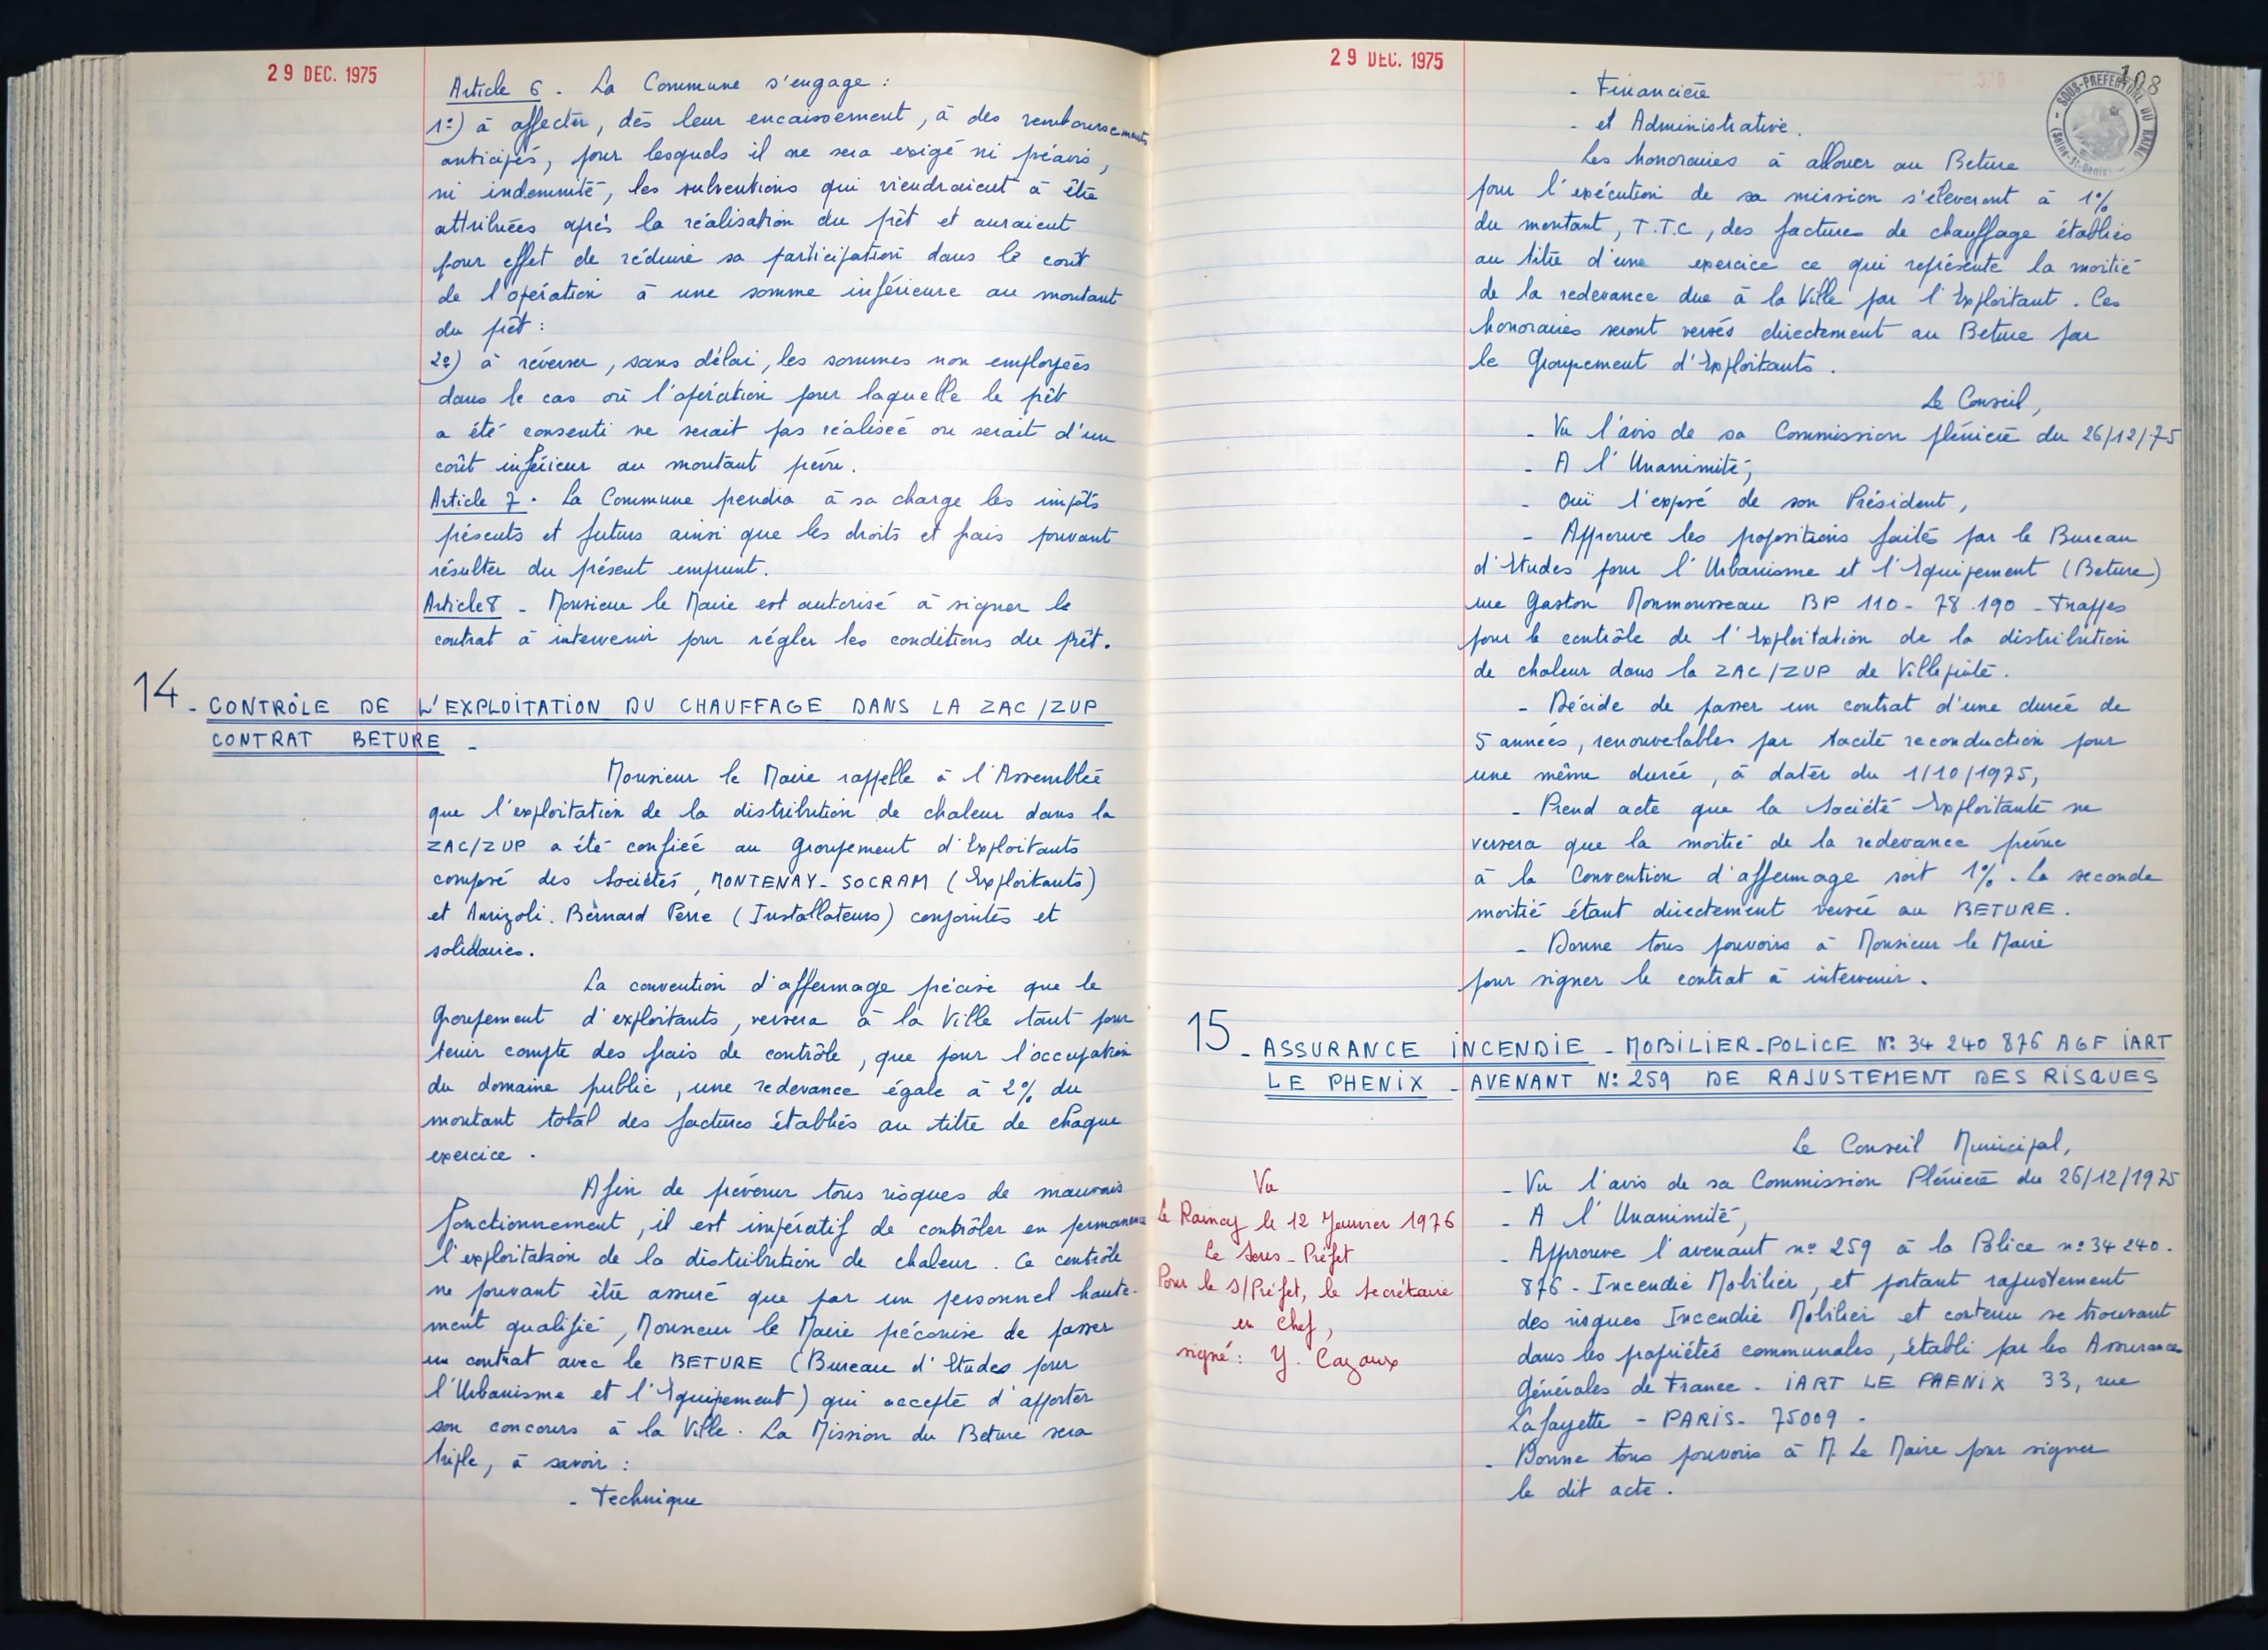 29 DEC. 1975
Article 6. La Commune s'engage :
1º) à affecter, dès leur encaissement, à des remboursements
anticipés, pour lesquels il ne sera exigé ni préavis,
ni indemnité, les subventions qui viendraient à être
attribuées après la réalisation du prêt et auraient
pour effet de réduire sa participation dans le coût
de l'opération à une somme inférieure au montant
du prêt :
2º) à reverser, sans délai, les sommes non employées
dans le cas où l'opération pour laquelle le prêt
a été consenti ne serait pas réalisée ou serait d'un
coût inférieur au montant prévu.
Article 7. La Commune prendra à sa charge les impôts
présents et futurs ainsi que les droits et frais pouvant
résulter du présent emprunt.
Article 8 - Monsieur le Maire est autorisé à signer le
contrat à intervenir pour régler les conditions du prêt.
14 - CONTRÔLE DE L'EXPLOITATION DU CHAUFFAGE DANS LA ZAC/ZUP
CONTRAT BETURE -
Monsieur le Maire rappelle à l'Assemblée
que l'exploitation de la distribution de chaleur dans la
ZAC/ZUP a été confiée au Groupement d'Exploitants
composé des Sociétés, MONTENAY-SOCRAM (Exploitants)
et Anrizoli. Bernard Père (Installateurs) conjointes et
solidaires.
La convention d'affermage précise que le
Groupement d'exploitants, versera à la Ville tant pour
tenir compte des frais de contrôle, que pour l'occupation
du domaine public, une redevance égale à 2% du
montant total des factures établies au titre de chaque
exercice.
Afin de prévenir tous risques de mauvais
fonctionnement, il est impératif de contrôler en permanence
l'exploitation de la distribution de chaleur. Ce contrôle
ne pouvant être assuré que par un personnel haute-
ment qualifié, Monsieur le Maire préconise de passer
un contrat avec le BETURE (Bureau d'Etudes pour
l'Urbanisme et l'Equipement) qui accepte d'apporter
son concours à la Ville. La Mission du Beture sera
triple, à savoir :
- Technique
29 DEC. 1975
108
SOUS-PREFECTURE DU RAINCY
(Seine-St-Denis)
- Financière
- et Administrative.
Les honoraires à allouer au Beture
pour l'exécution de sa mission s'éleveront à 1%
du montant, T.T.C, des factures de chauffage établies
au titre d'une exercice ce qui représente la moitié
de la redevance due à la Ville par l'Exploitant. Ces
honoraires seront versés directement au Beture par
le Groupement d'Exploitants.
Le Conseil,
- Vu l'avis de sa Commission plénière du 26/12/75
- A l'Unanimité,
- Ouï l'exposé de son Président,
- Approuve les propositions faites par le Bureau
d'Etudes pour l'Urbanisme et l'Equipement (Beture)
rue Gaston Monmousseau BP 110 - 78.190 - Trappes
pour le contrôle de l'Exploitation de la distribution
de chaleur dans la ZAC/ZUP de Villepinte.
- Décide de passer un contrat d'une durée de
5 années, renouvelables par tacite reconduction pour
une même durée, à dater du 1/10/1975,
- Prend acte que la Société Exploitante ne
versera que la moitié de la redevance prévue
à la Convention d'affermage soit 1%. La seconde
moitié étant directement versée au BETURE.
- Donne tous pouvoirs à Monsieur le Maire
pour signer le contrat à intervenir.
15 - ASSURANCE INCENDIE - MOBILIER - POLICE Nº 34 240 876 AGF IART
LE PHENIX - AVENANT Nº 259 DE RAJUSTEMENT DES RISQUES
Le Conseil Municipal,
- Vu l'avis de sa Commission Plénière du 26/12/1975
- A l'Unanimité,
- Approuve l'avenant nº 259 à la Police nº 34 240.
876 - Incendie Mobilier, et portant rajustement
des risques Incendie Mobilier et contenu se trouvant
dans les propriétés communales, établi par les Assurances
Générales de France. IART LE PHENIX 33, rue
Lafayette - PARIS - 75009 -
- Donne tous pouvoirs à M. Le Maire pour signer
le dit acte.
Vu
Le Raincy le 12 Janvier 1976
Le Sous-Préfet
Pour le S/Préfet, le Secrétaire
en Chef,
signé : Y. Cazaux